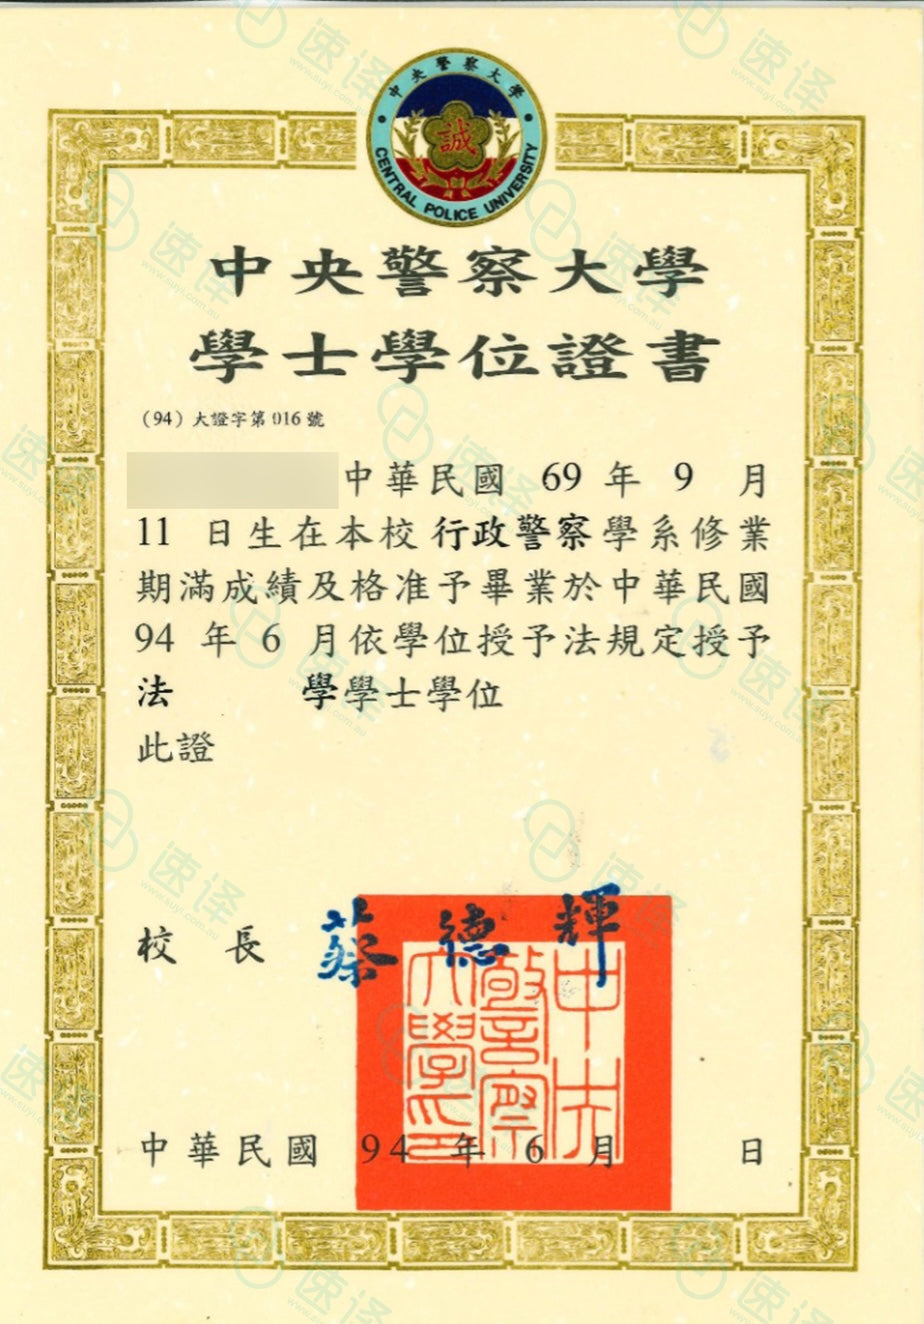 中央警察大學
誠
CENTRAL POLICE UNIVERSITY
中央警察大學
學士學位證書
(94) 大證字第 016 號
中華民國 69 年 9 月
11 日生在本校行政警察學系修業
期滿成績及格准予畢業於中華民國
94 年 6 月依學位授予法規定授予
法 學學士學位
此證
校 長 蔡德輝
中央警察大學印
中華民國 94 年 6 月 日
速译
www.suyi.com.au